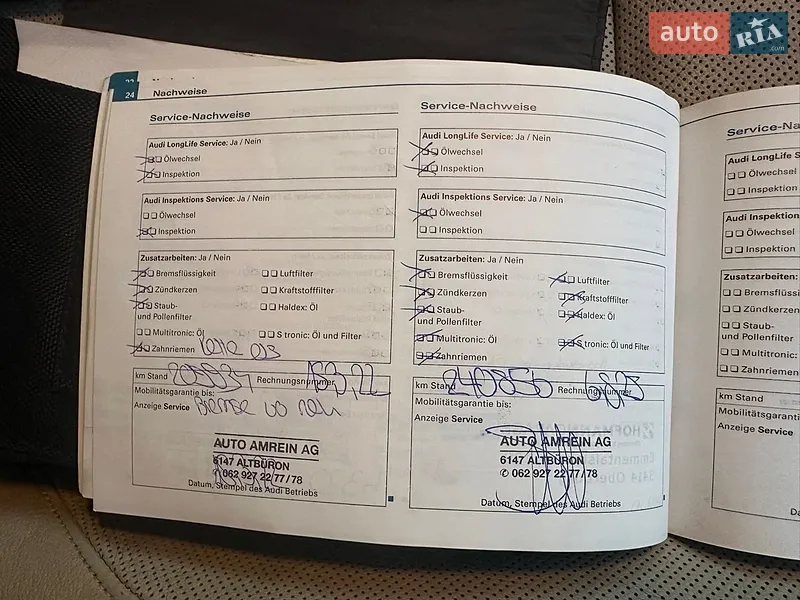 auto RIA .com
24 Nachweise
Service-Nachweise
Audi LongLife Service: Ja / Nein
Ölwechsel
Inspektion
Audi Inspektions Service: Ja / Nein
Ölwechsel
Inspektion
Zusatzarbeiten: Ja / Nein
Bremsflüssigkeit Luftfilter
Zündkerzen Kraftstofffilter
Staub- Haldex: Öl
und Pollenfilter
Multitronic: Öl S tronic: Öl und Filter
Zahnriemen
km Stand Rechnungsnummer
Mobilitätsgarantie bis:
Anzeige Service
AUTO AMREIN AG
6147 ALTBÜRON
062 927 22/77/78
Datum, Stempel des Audi Betriebs
Service-Nachweise
Audi LongLife Service: Ja / Nein
Ölwechsel
Inspektion
Audi Inspektions Service: Ja / Nein
Ölwechsel
Inspektion
Zusatzarbeiten: Ja / Nein
Bremsflüssigkeit Luftfilter
Zündkerzen Kraftstofffilter
Staub- Haldex: Öl
und Pollenfilter
Multitronic: Öl S tronic: Öl und Filter
Zahnriemen
km Stand 240856 Rechnungsnummer
Mobilitätsgarantie bis:
Anzeige Service
AUTO AMREIN AG
6147 ALTBÜRON
✆ 062 927 22/77/78
Datum, Stempel des Audi Betriebs
Service-Na
Audi LongLife S
Ölwechsel
Inspektion
Audi Inspektion
Ölwechsel
Inspektion
Zusatzarbeiten:
Bremsflüssi
Zündkerzen
Staub-
und Pollenfilter
Multitronic:
Zahnriemen
km Stand
Mobilitätsgaranti
Anzeige Service